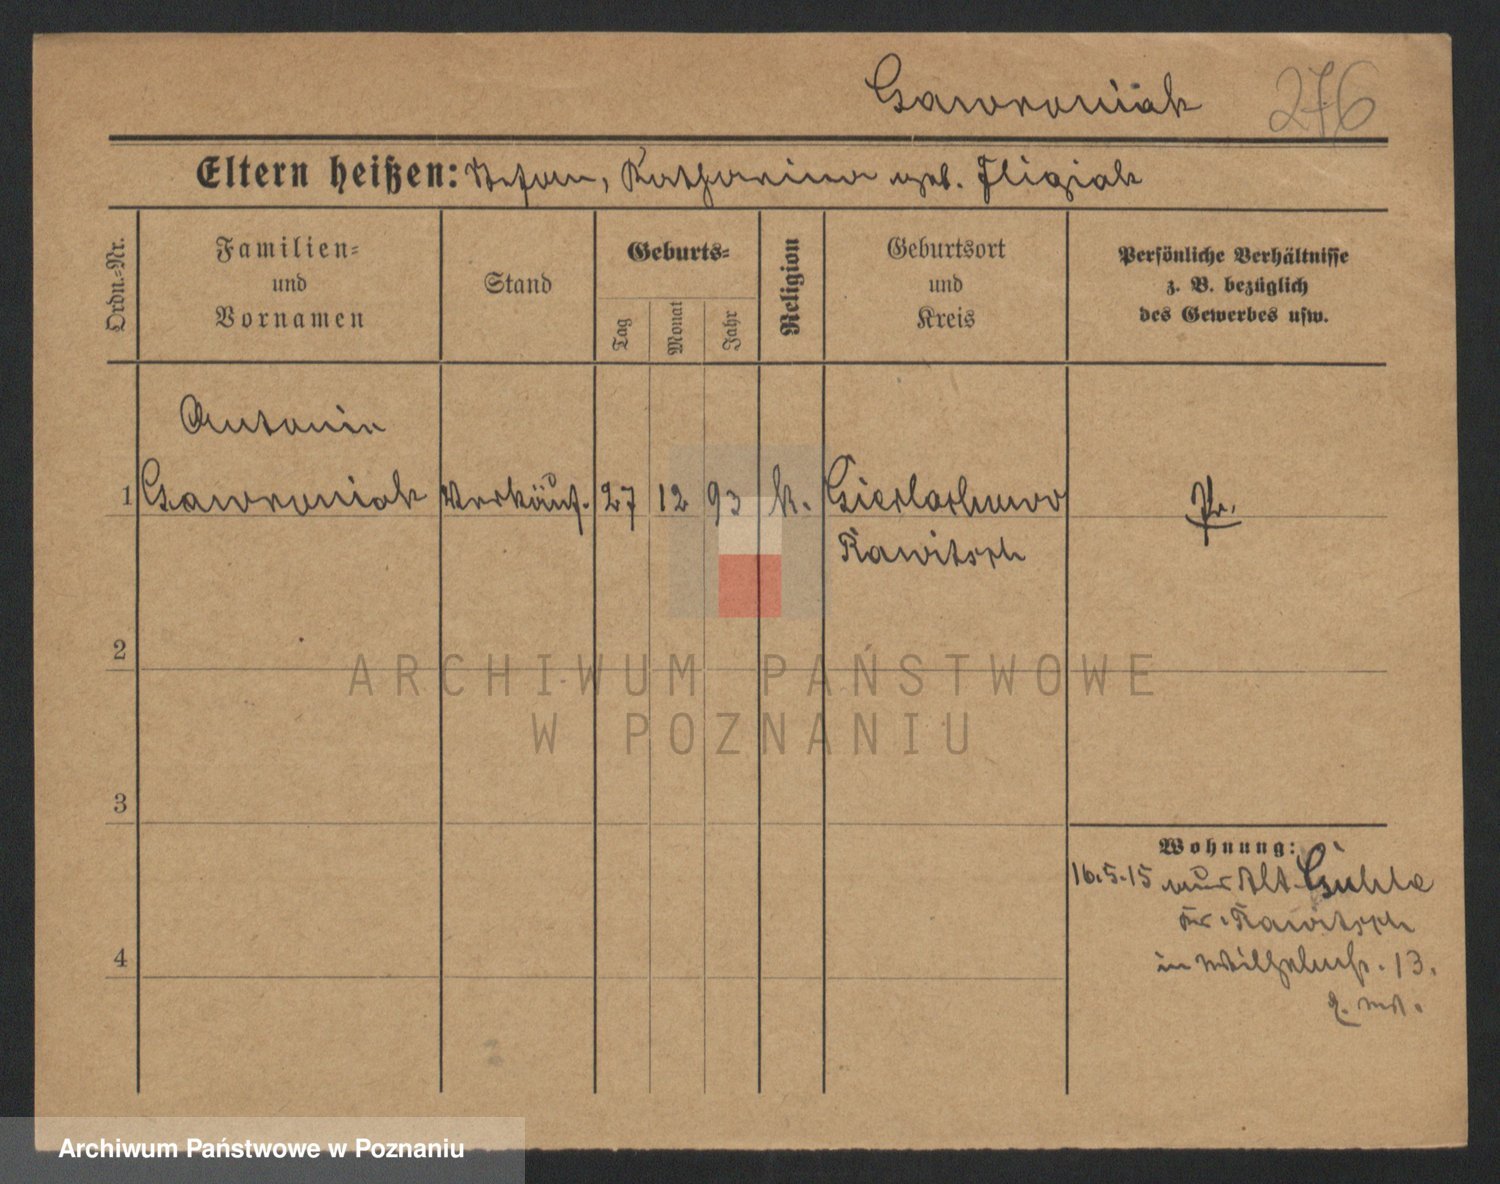 Gawroniak 276
Eltern heißen: Stefan, Katharina geb. Fligiak
Ordn.-Nr.
Familien-
und
Vornamen
Stand
Geburts-
Tag
Monat
Jahr
Religion
Geburtsort
und
Kreis
Persönliche Verhältnisse
z. B. bezüglich
des Gewerbes usw.
Antonin
1 Gawroniak Verkäuf. 27 12 93 k. Gierlachowo Pr.
Rawitsch
2
ARCHIWUM PAŃSTWOWE
W POZNANIU
3
Wohnung:
16.5.15 aus Alt Guhle
Kr. Rawitsch
4
in Wilhelmstr. 13.
Archiwum Państwowe w Poznaniu